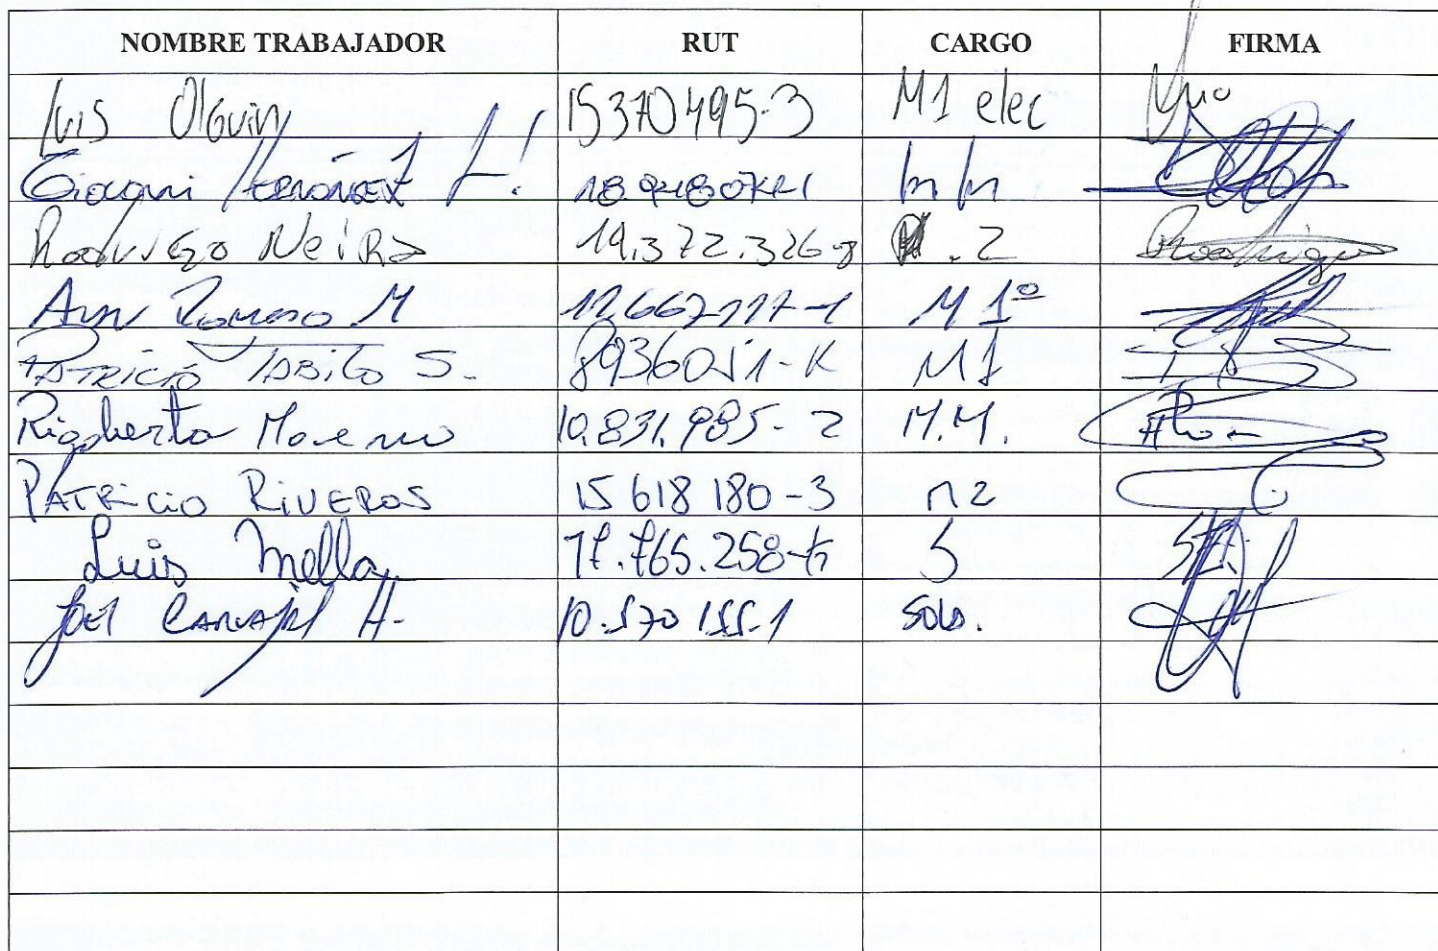 NOMBRE TRABAJADOR RUT CARGO FIRMA
Luis Olguin 15370495-3 M1 elec
Giovanni Hernández H. M M
Rodrigo Neira 19.372.326-8 M.2 Rodrigo
Romero M 12667217-1 M1º
Patricio Tabilo S. 8936051-K M1
Rigoberto Moreno 10.831.985-2 M.M.
PATRicio RiVEROS 15 618 180-3 M2
Luis Mella 17.765.258-K S
Joel CARVAJAL H- 10.570 155-1 SOLD.